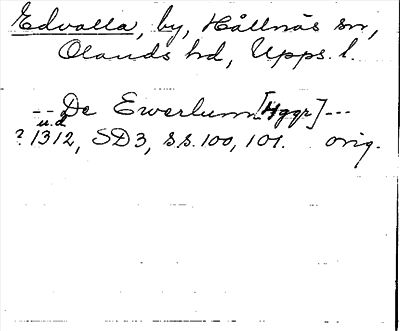 Edvalla, by, Hållnäs sn,
Olands hd, Upps. l.
-- De Ewerlum [Hggr] ---
u.d
? 1312, SD3, s.s. 100, 101. orig.